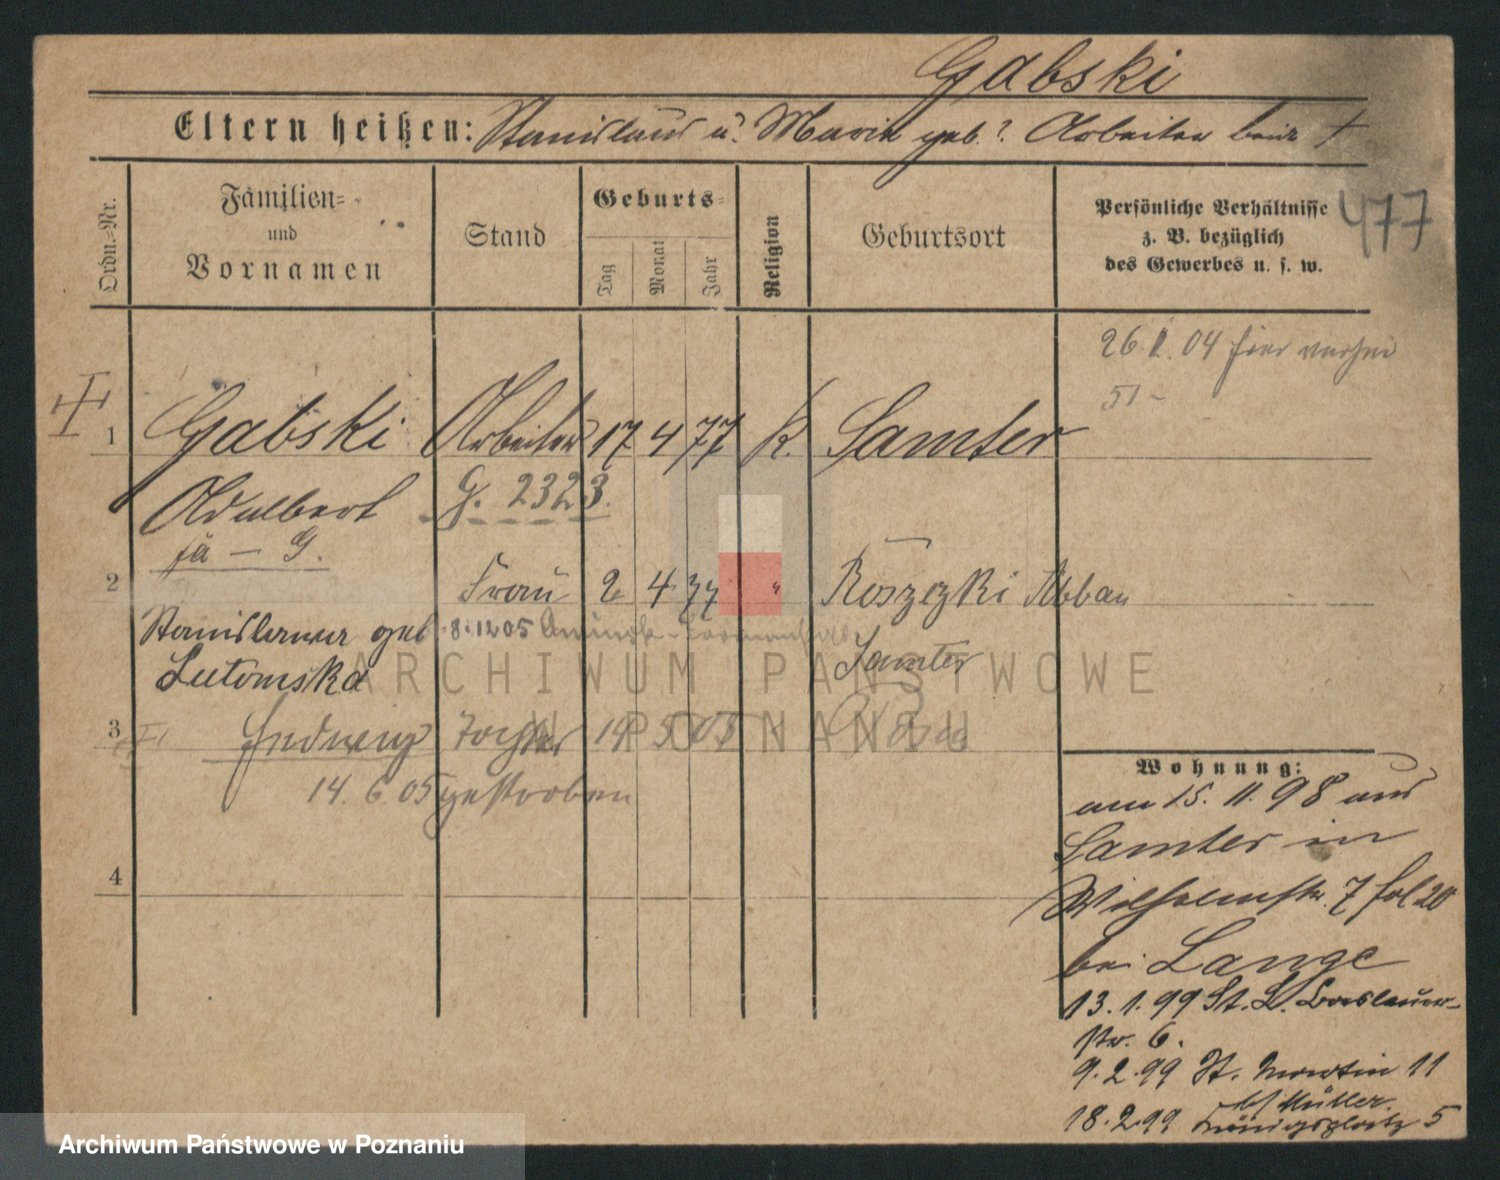 Gabski
Eltern heißen: Stanislaus u. Marie geb. ? Arbeiter beide †
Ordn.-Nr.
Familien-
und
Vornamen
Stand
Geburts-
Tag
Monat
Jahr
Religion
Geburtsort
Persönliche Verhältnisse
z. B. bezüglich
des Gewerbes u. s. w.
477
26. 04 hier
51 -
1 Gabski Arbeiter 17 4 77 K. Samter
Adalbert G. 2323.
ja - G.
2 Frau 2 4 77 " Koszczki Abbau
Stanislawa geb 8.1205
Lutomska Samter
3 Hedwig Tochter 14 5 05 Posen
14. 6. 05 gestorben
4
Wohnung:
am 15. 11. 98 aus
Samter in
Wilhelmstr. 7 fol 20
bei Lange
13. 1. 99 St. L. Breslauer-
str. 6.
9. 2. 99 St. Martin 11
bei Müller
18. 2. 99 Königsplatz 5
ARCHIWUM PAŃSTWOWE
W POZNANIU
Archiwum Państwowe w Poznaniu